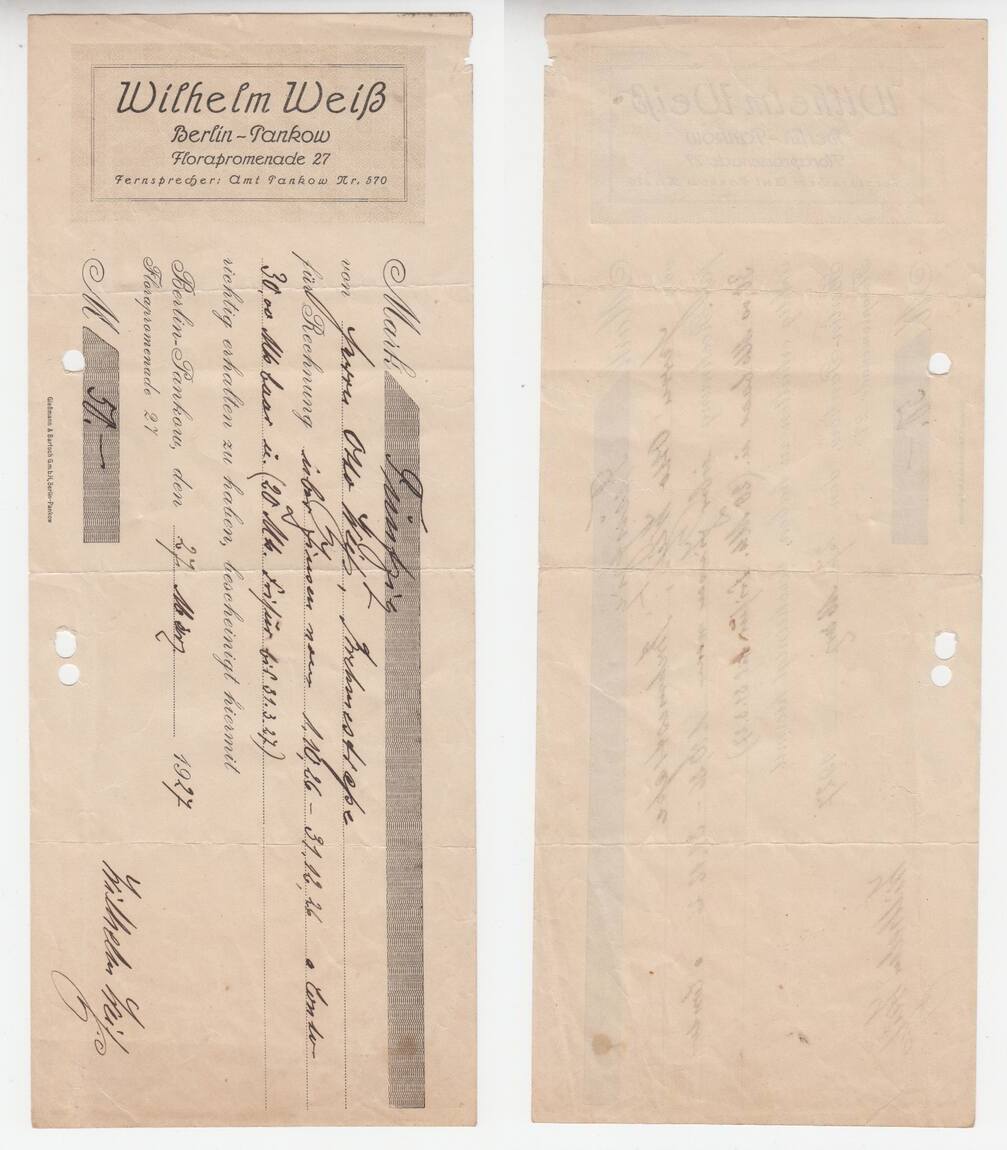 Wilhelm Weiß
Berlin-Pankow
Florapromenade 27
Fernsprecher: Amt Pankow Nr. 570
Mark Fünfzig
von Herrn Otto
für Rechnung über Zinsen vom 1.10.26 – 31.12.26 a Conto
30,00 Mk baar u. (20 Mk. bis 31.3.27)
richtig erhalten zu haben, bescheinigt hiermit
Berlin-Pankow, den 27. März 1927
Florapromenade 27
M 50.—
Wilhelm Weiß
Gießmann & Bartsch G.m.b.H, Berlin-Pankow